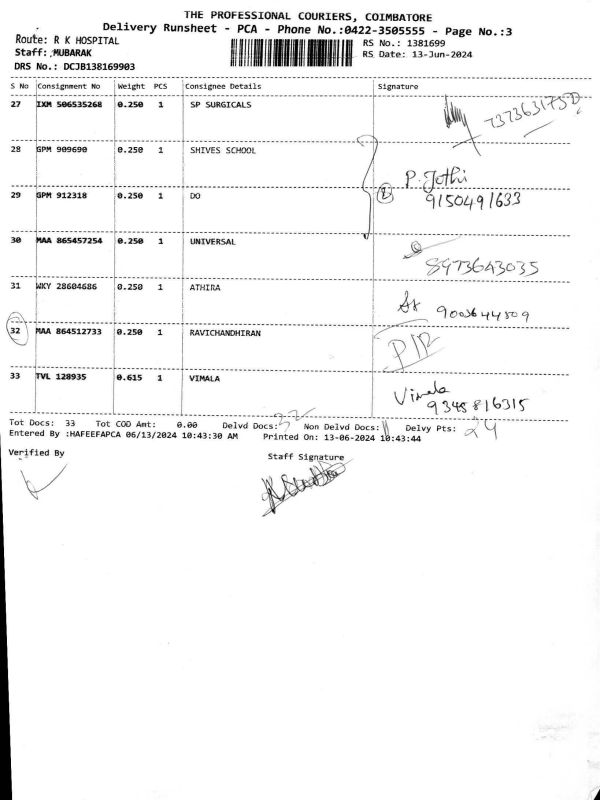 THE PROFESSIONAL COURIERS, COIMBATORE
Delivery Runsheet - PCA - Phone No.:0422-3505555 - Page No.:3
Route: R K HOSPITAL
RS No.: 1381699
Staff: MUBARAK
RS Date: 13-Jun-2024
DRS No.: DCJB138169903
S No Consignment No Weight PCS Consignee Details Signature
27 IXM 506535268 0.250 1 SP SURGICALS
28 GPM 909690 0.250 1 SHIVES SCHOOL
P. Jothi
29 GPM 912318 0.250 1 DO 2 9150491633
30 MAA 865457254 0.250 1 UNIVERSAL
8973643035
31 WKY 28604686 0.250 1 ATHIRA
9003644809
32 MAA 864512733 0.250 1 RAVICHANDHIRAN
33 TVL 128935 0.615 1 VIMALA Vimala
9345816315
Tot Docs: 33 Tot COD Amt: 0.00 Delvd Docs: 32 Non Delvd Docs: Delvy Pts: 24
Entered By :HAFEEFAPCA 06/13/2024 10:43:30 AM Printed On: 13-06-2024 10:43:44
Verified By Staff Signature